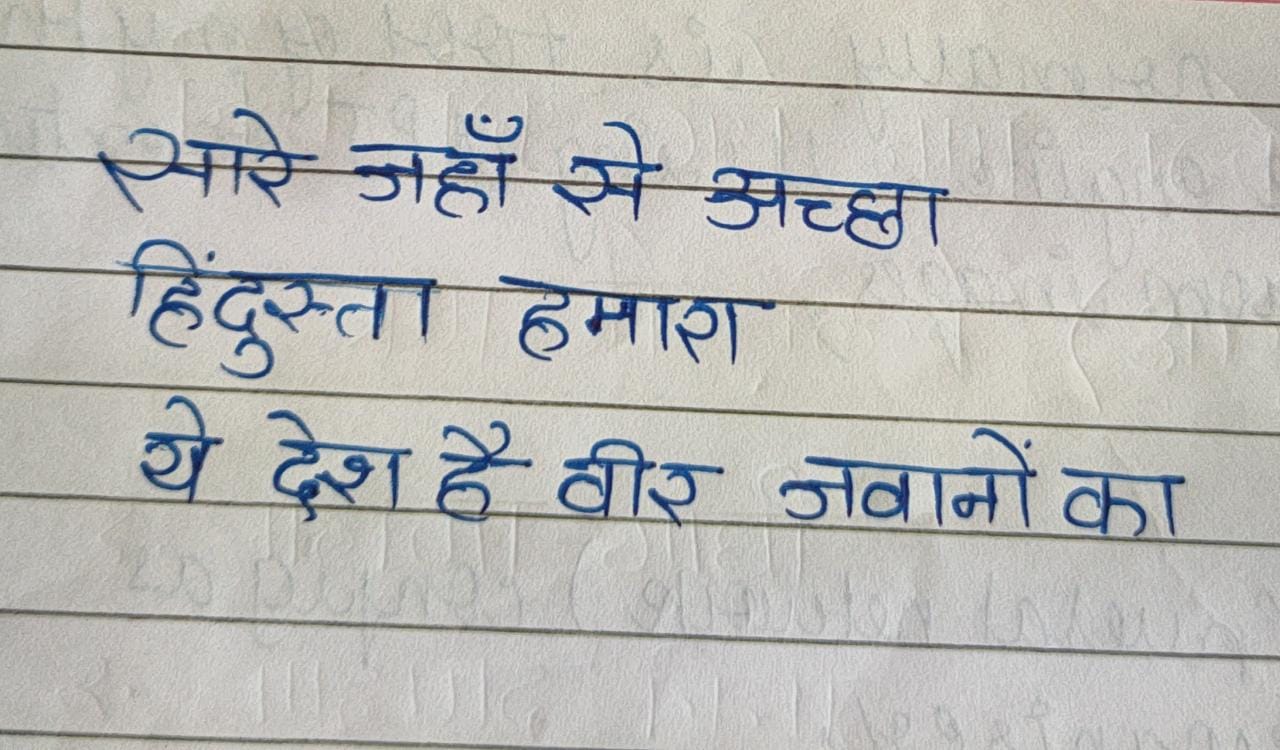 सारे जहाँ से अच्छा
हिंदुस्ता हमारा
ये देश है वीर जवानों का